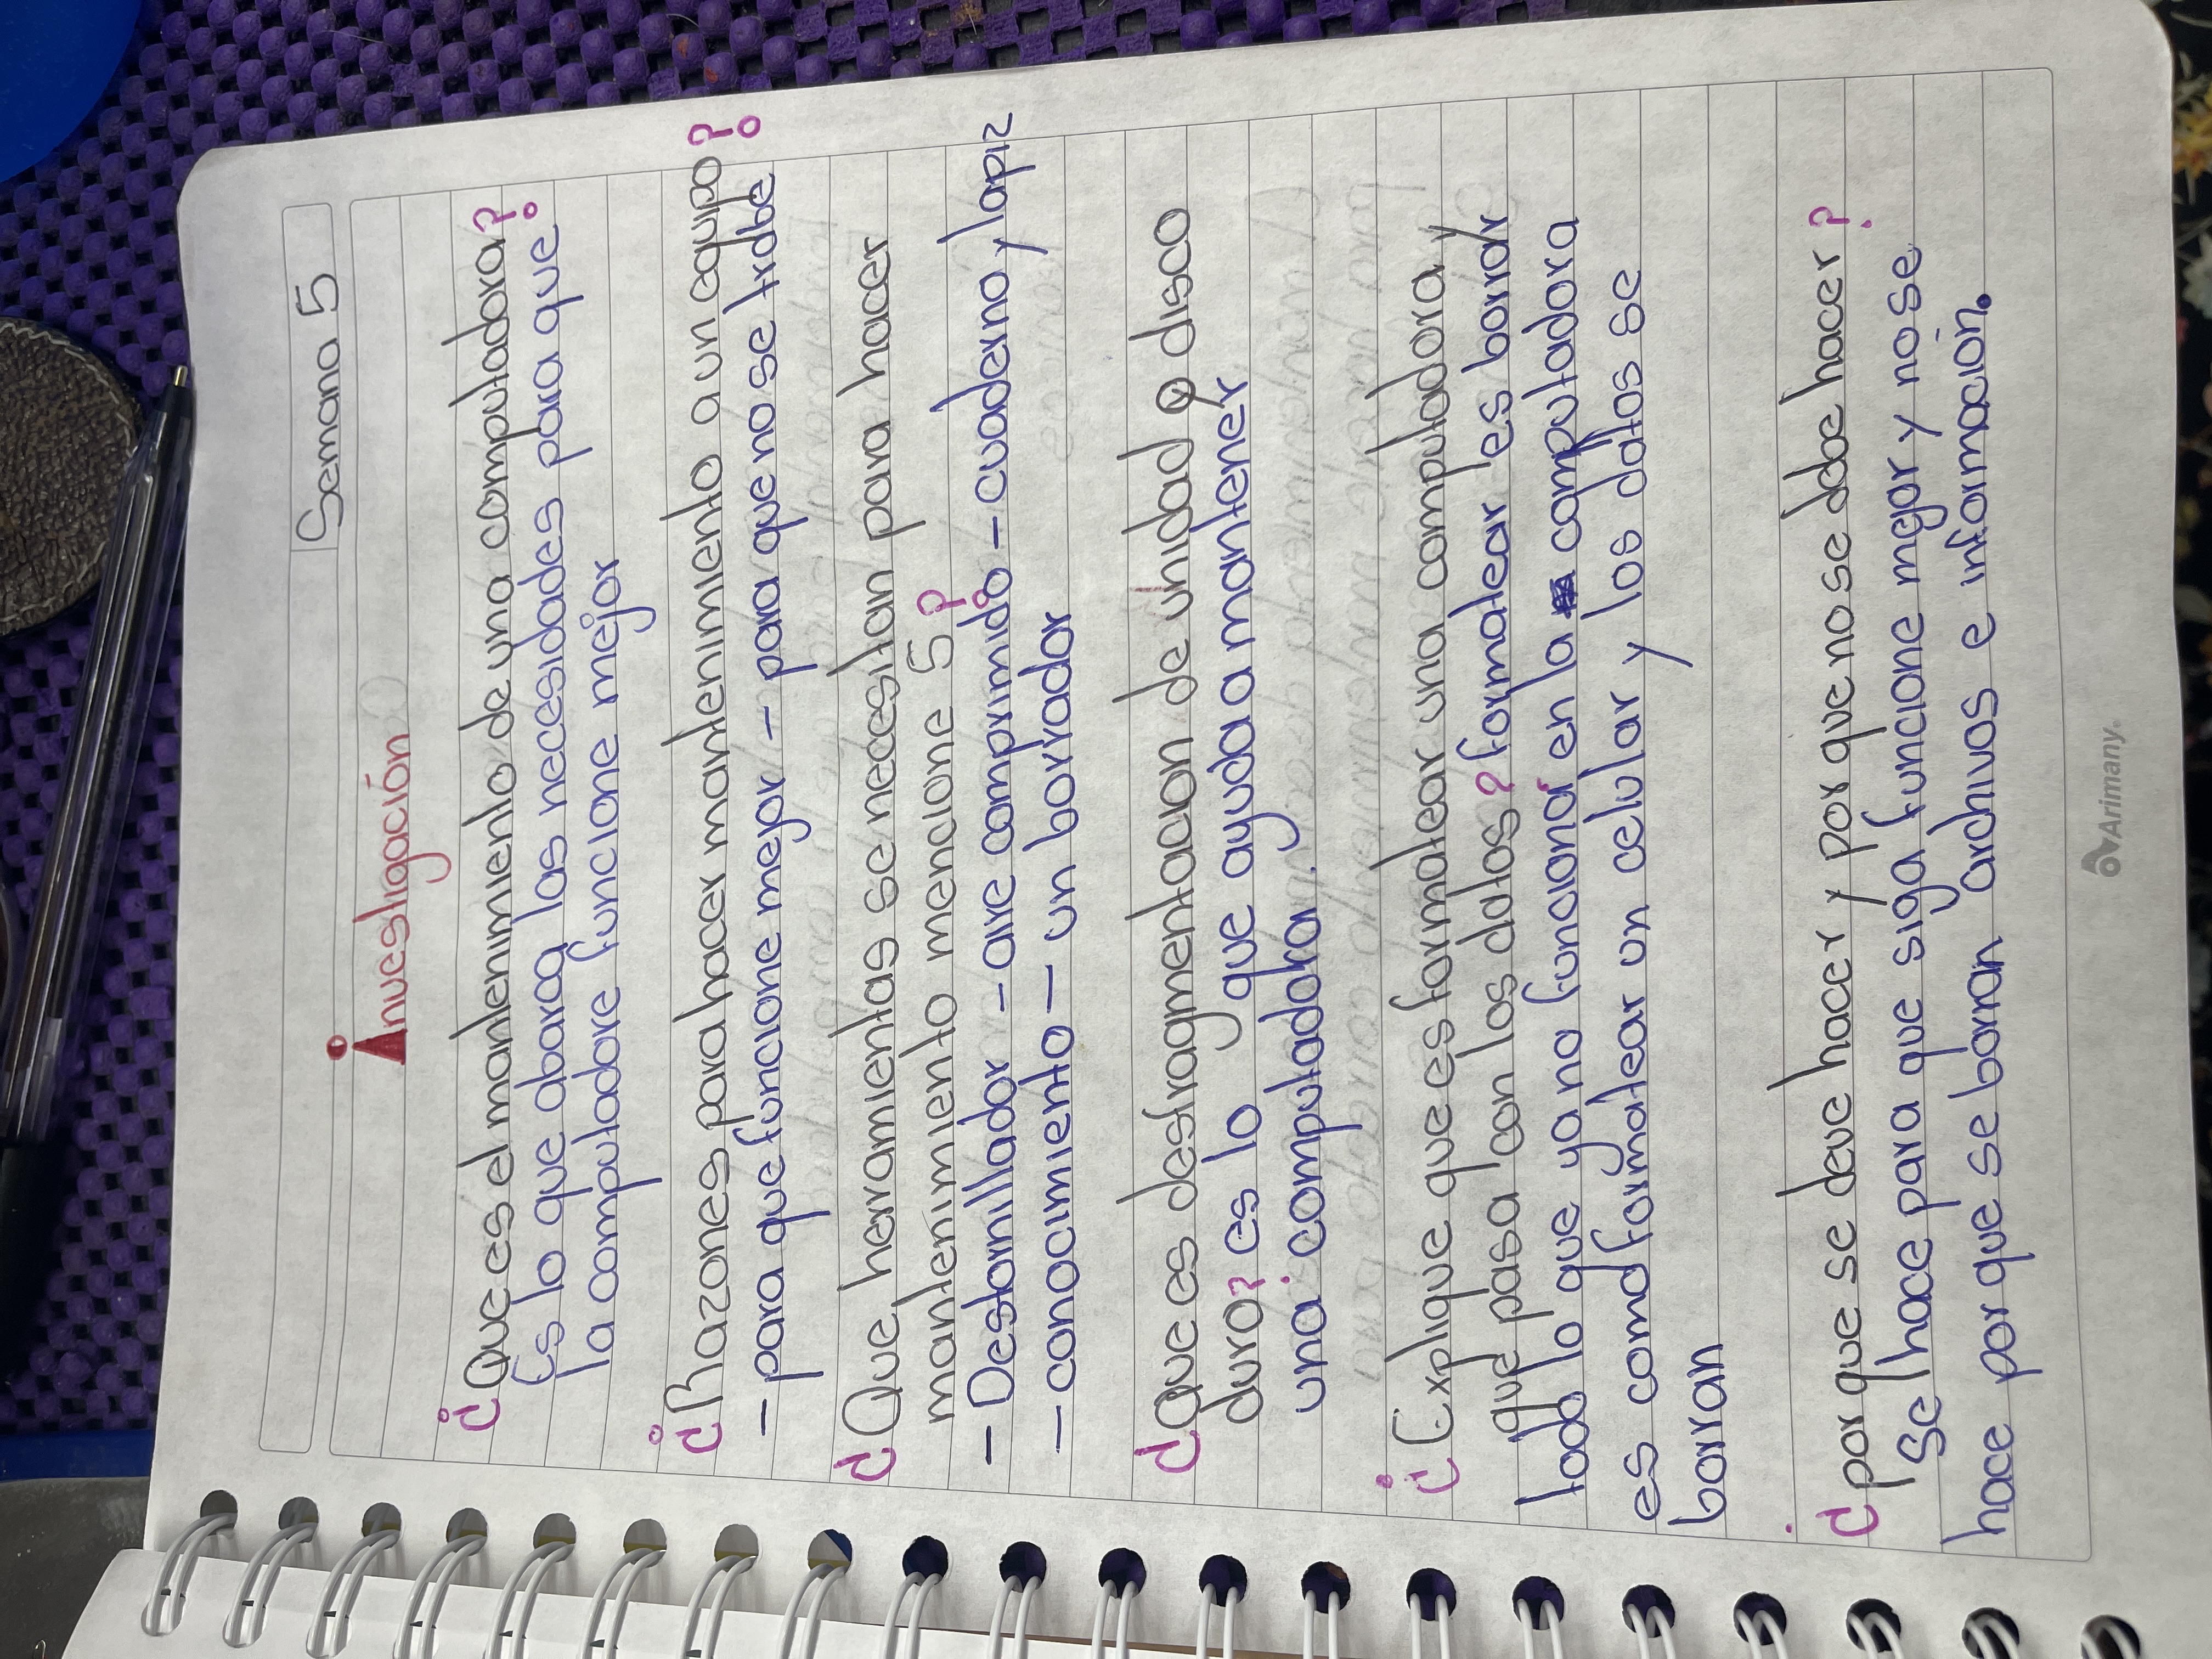 Semana 5
Investigación
¿Que es el mantenimiento de una computadora?
Es lo que abarca las necesidades para que
la computadore funcione mejor
¿Razones para hacer mantenimiento a un equipo?
- para que funcione mejor - para que no se trabe
¿Que herramientas se necesitan para hacer
mantenimiento mencione 5?
- Destornillador - aire comprimido - cuaderno y lapiz
- conocimiento - un borrador
¿Que es desfragmentacion de unidad o disco
duro? es lo que ayuda a mantener
una computadora.
¿Explique que es formatear una computadora y
que pasa con los datos? formatear es borrar
todo lo que ya no funciona en la computadora
es como formatear un celular y los datos se
borran
¿por que se deve hacer y por que no se debe hacer?
Se hace para que siga funcione mejor y no se
hace por que se borran archivos e informacion.
Arimany